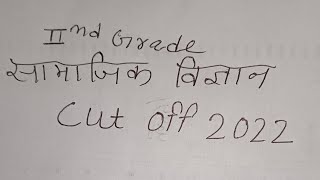 IInd Grade
सामाजिक विज्ञान
Cut off 2022